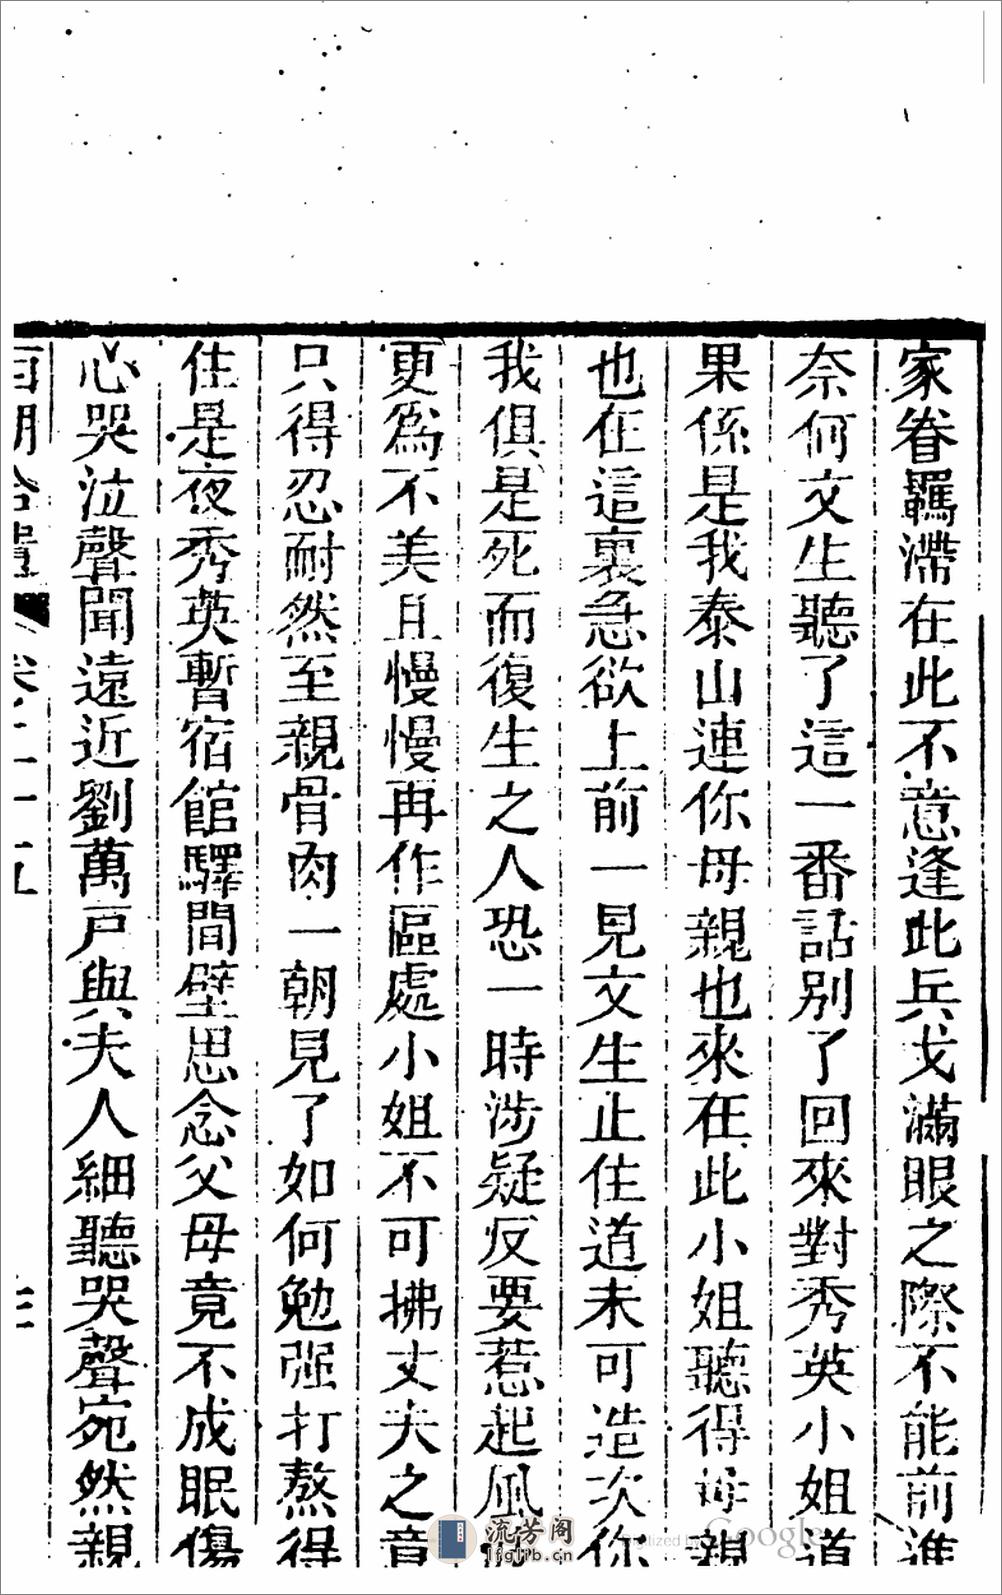 家眷羈滯在此不意逢此兵戈滿眼之際不能前進
奈何文生聽了這一番話別了回來對秀英小姐道
果係是我泰山連你母親也來在此小姐聽得母親
也在這裏急欲上前一見文生止住道未可造次你
我俱是死而復生之人恐一時涉疑反要惹起風
更爲不美且慢慢再作區處小姐不可拂丈夫之意
只得忍耐然至親骨肉一朝見了如何勉強打熬得
住是夜秀英暫宿館驛間壁思念父母竟不成眠傷
心哭泣聲聞遠近劉萬戶與夫人細聽哭聲宛然親
流芳阁
lfglib.cn
Digitized by Google